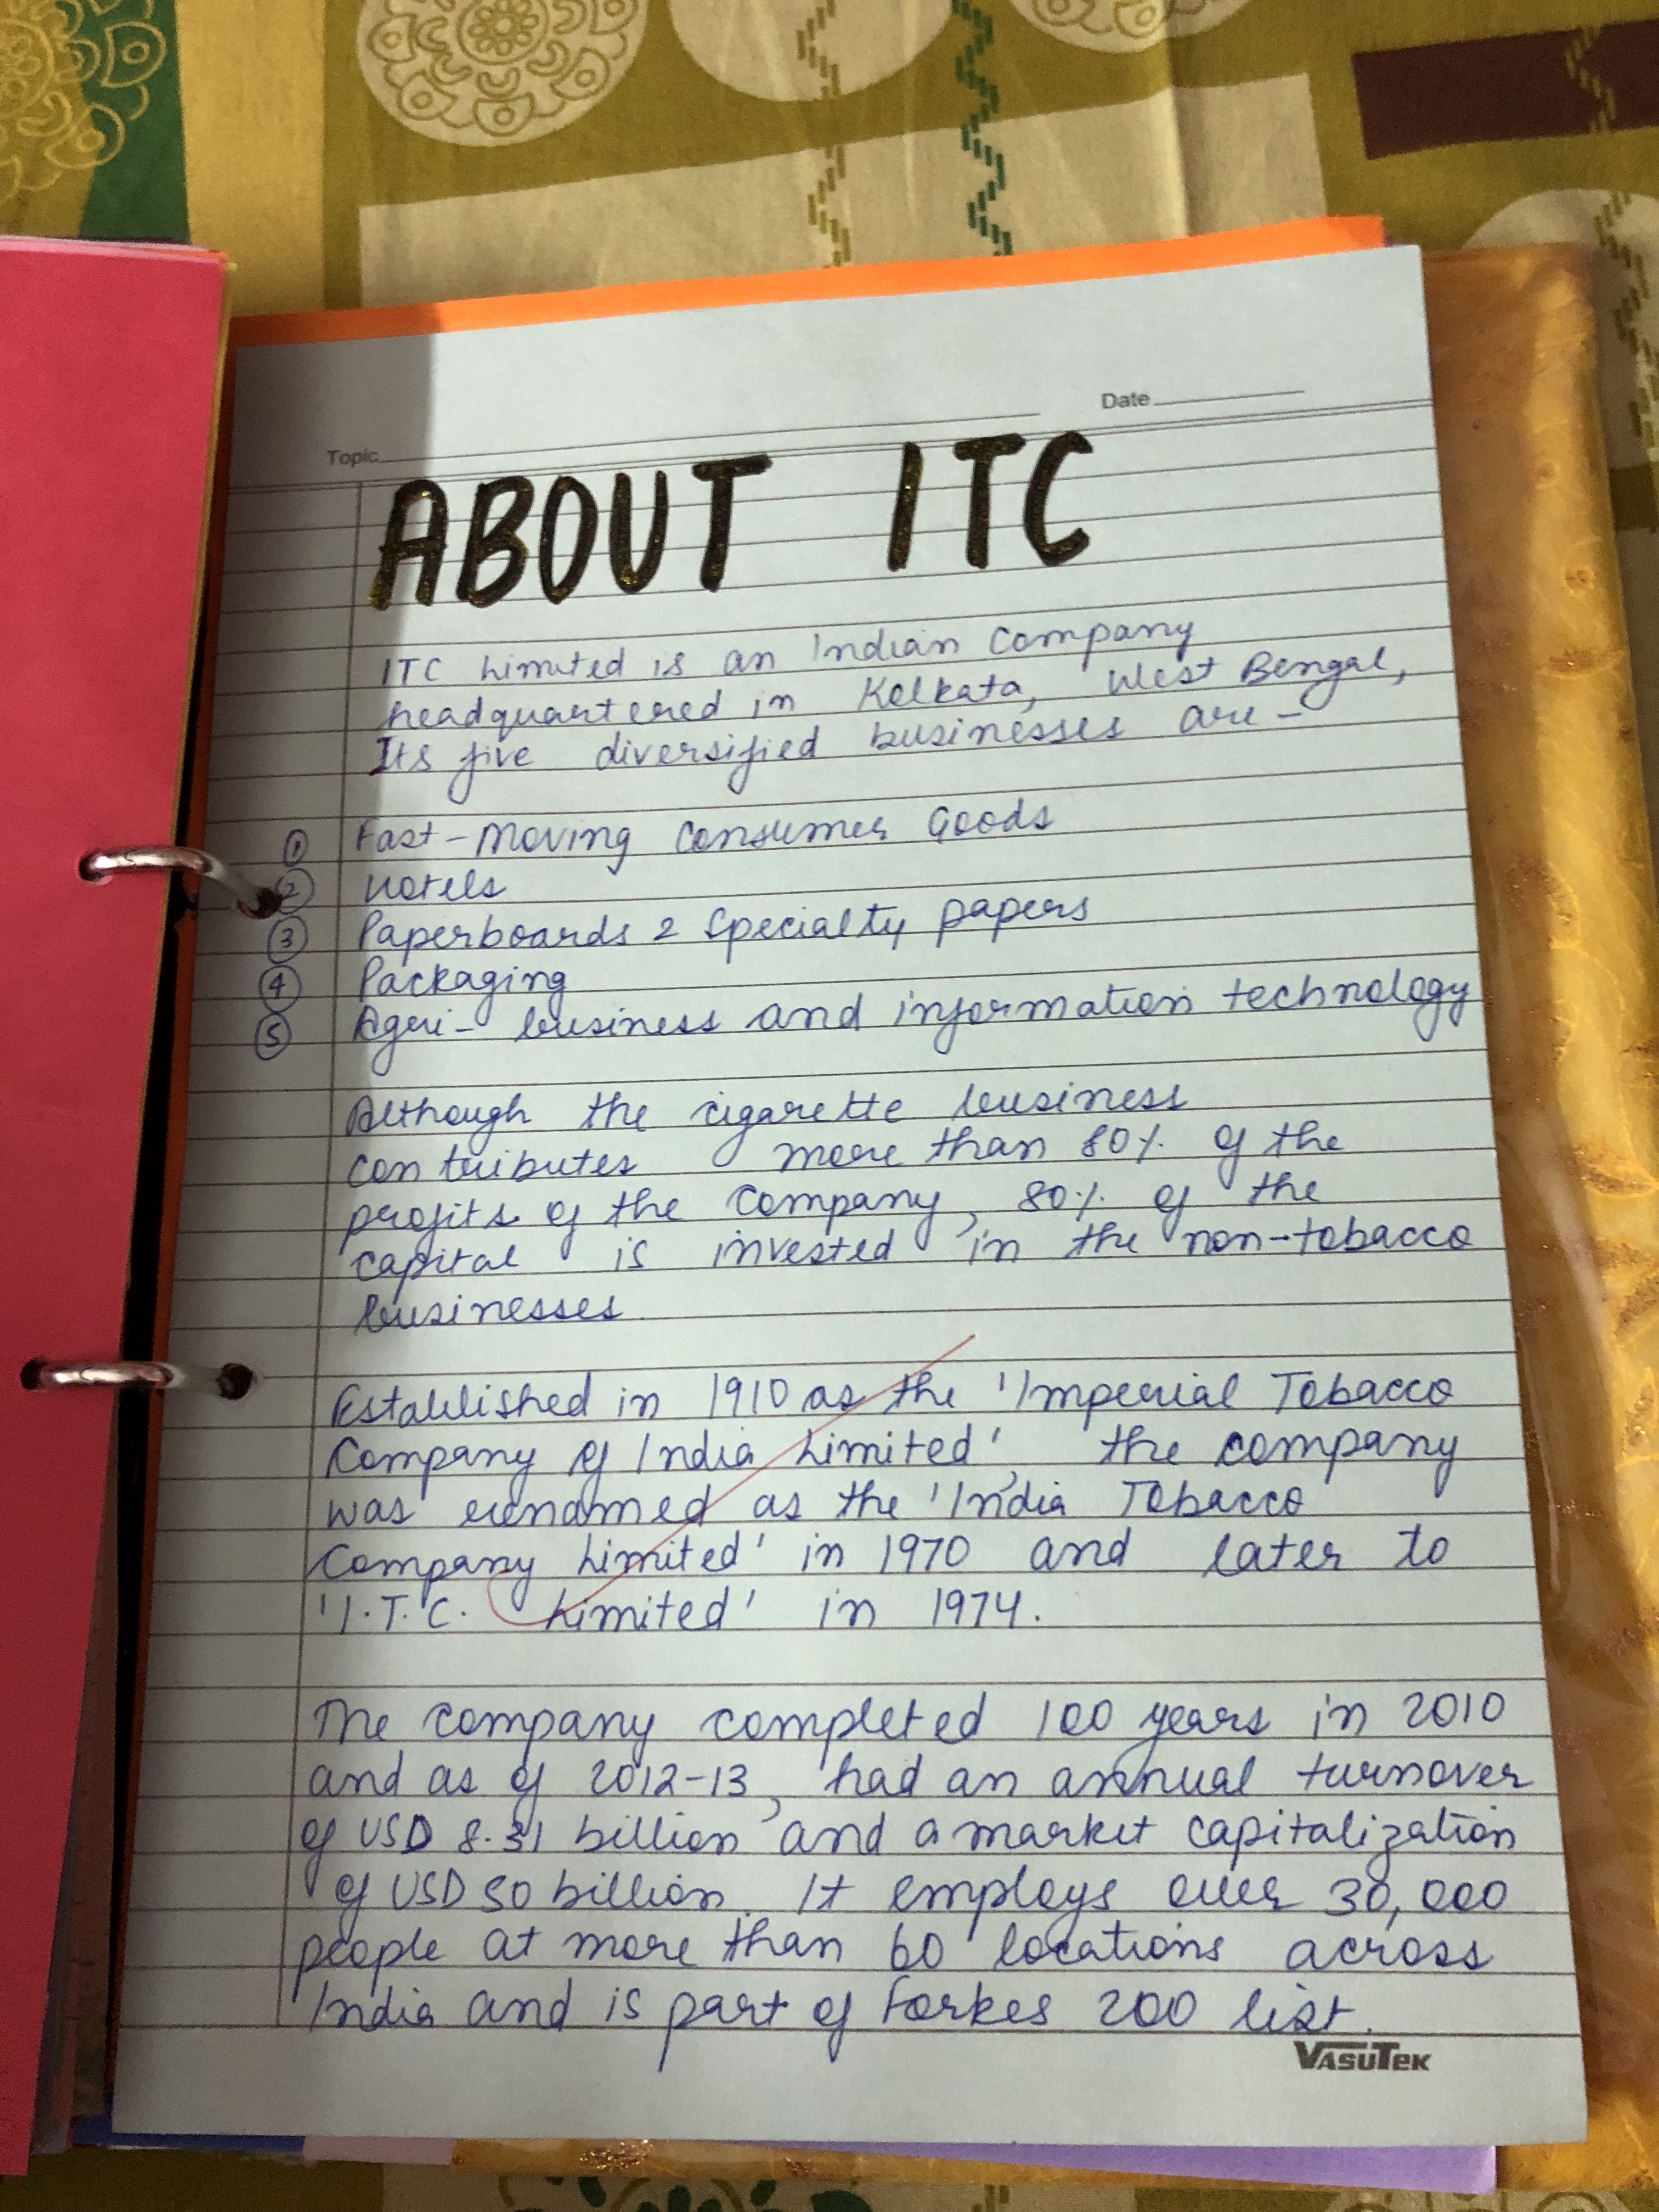 Date
Topic
ABOUT ITC
ITC Limited is an Indian Company
headquartered in Kolkata, West Bengal,
Its five diversified businesses are -
1 Fast-Moving Consumer Goods
2 Hotels
3 Paperboards & Specialty papers
4 Packaging
5 Agri- business and information technology
Although the cigarette business
contributes more than 80% of the
profits of the company, 80% of the
capital is invested in the non-tobacco
businesses.
Established in 1910 as the 'Imperial Tobacco
Company of India Limited', the company
was renamed as the 'India Tobacco
Company Limited' in 1970 and later to
'I.T.C. Limited' in 1974.
The company completed 100 years in 2010
and as of 2012-13, had an annual turnover
of USD 8.31 billion and a market capitalization
of USD 50 billion. It employs over 30,000
people at more than 60 locations across
India and is part of Forkes 200 list.
VASUTEK